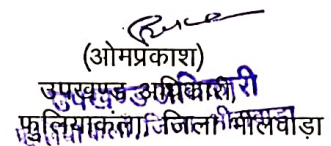 (ओमप्रकाश)
उपखण्ड अधिकारी
फुलियाकलां, जिला भीलवाड़ा